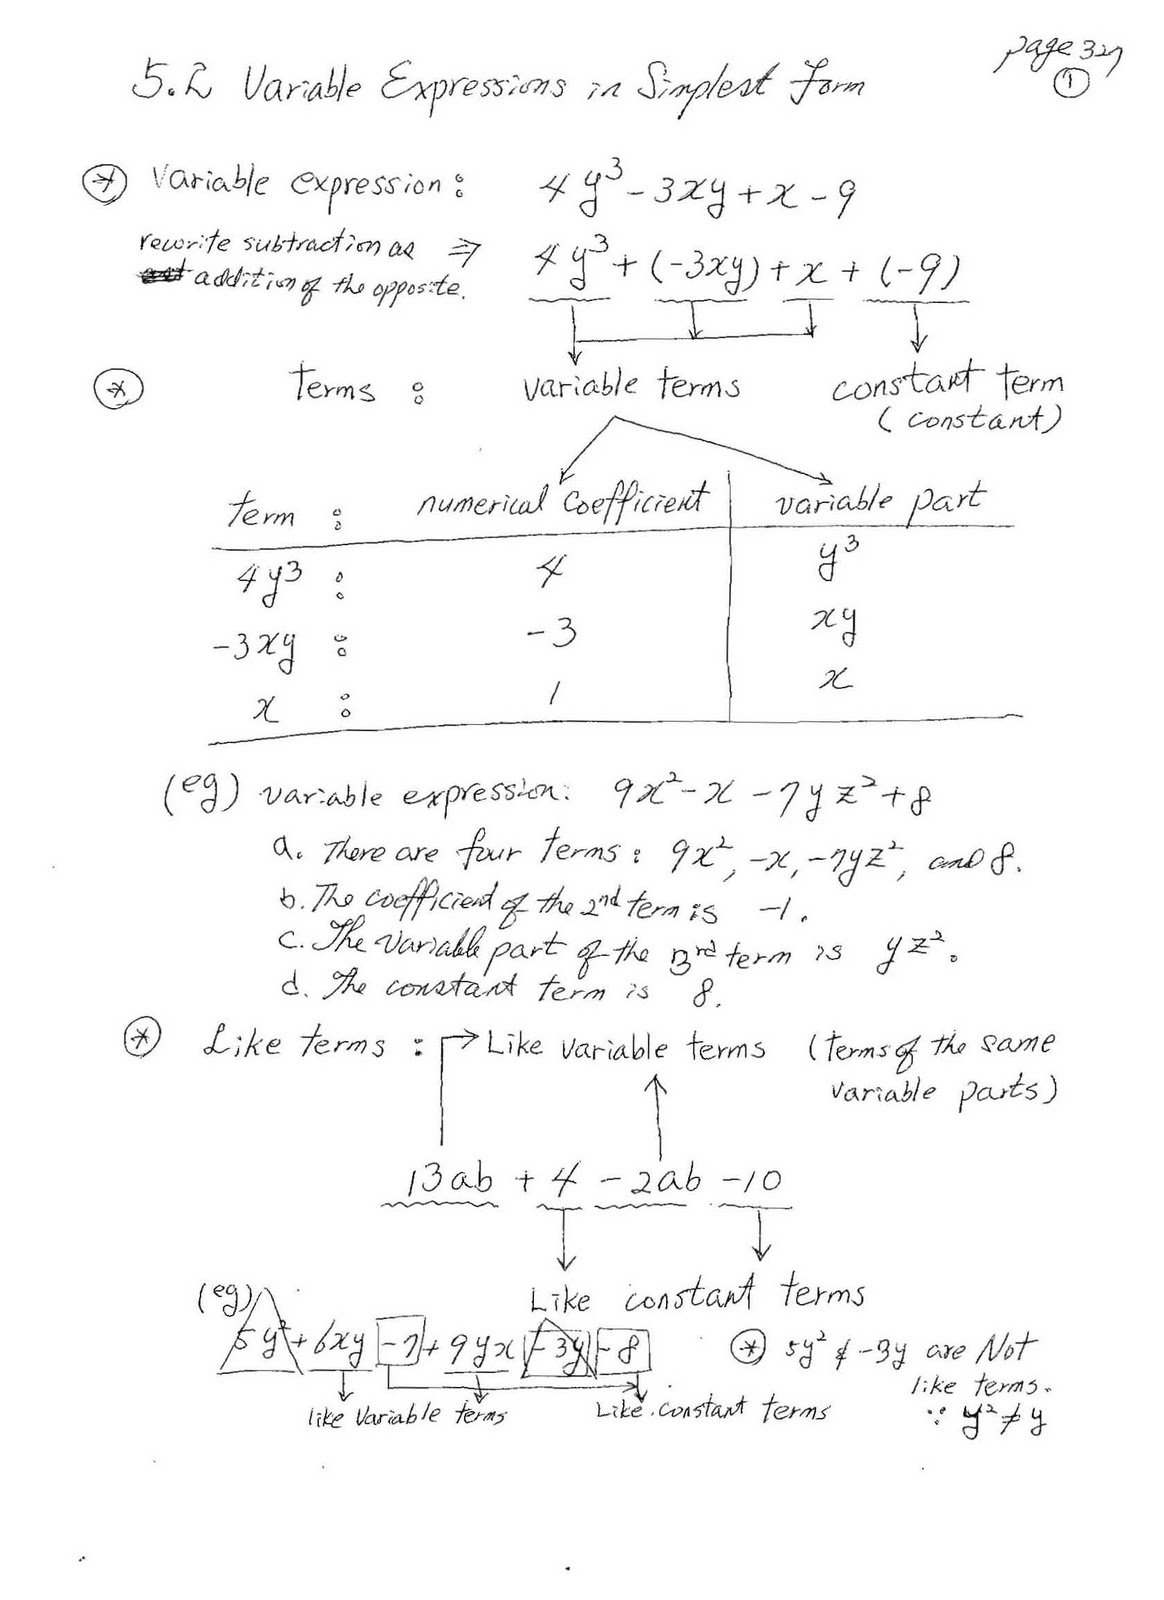 page 327
①
5.2 Variable Expressions in Simplest Form
⊛ Variable expression: 4y³ - 3xy + x - 9
rewrite subtraction as ⇒ 4y³ + (-3xy) + x + (-9)
addition of the opposite.
⊛ Terms : variable terms constant term
(constant)
term : numerical coefficient variable part
4y³ : 4 y³
-3xy : -3 xy
x : 1 x
(eg) variable expression: 9x² - x - 7yz² + 8
a. There are four terms: 9x², -x, -7yz², and 8.
b. The coefficient of the 2nd term is -1.
c. The variable part of the 3rd term is yz².
d. The constant term is 8.
⊛ Like terms : → Like variable terms (terms of the same
variable parts)
13ab + 4 - 2ab - 10
Like constant terms
(eg)
5y² + 6xy - 7 + 9yx - 3y - 8 ⊛ 5y² & -3y are Not
like terms.
like variable terms Like constant terms ∵ y² ≠ y